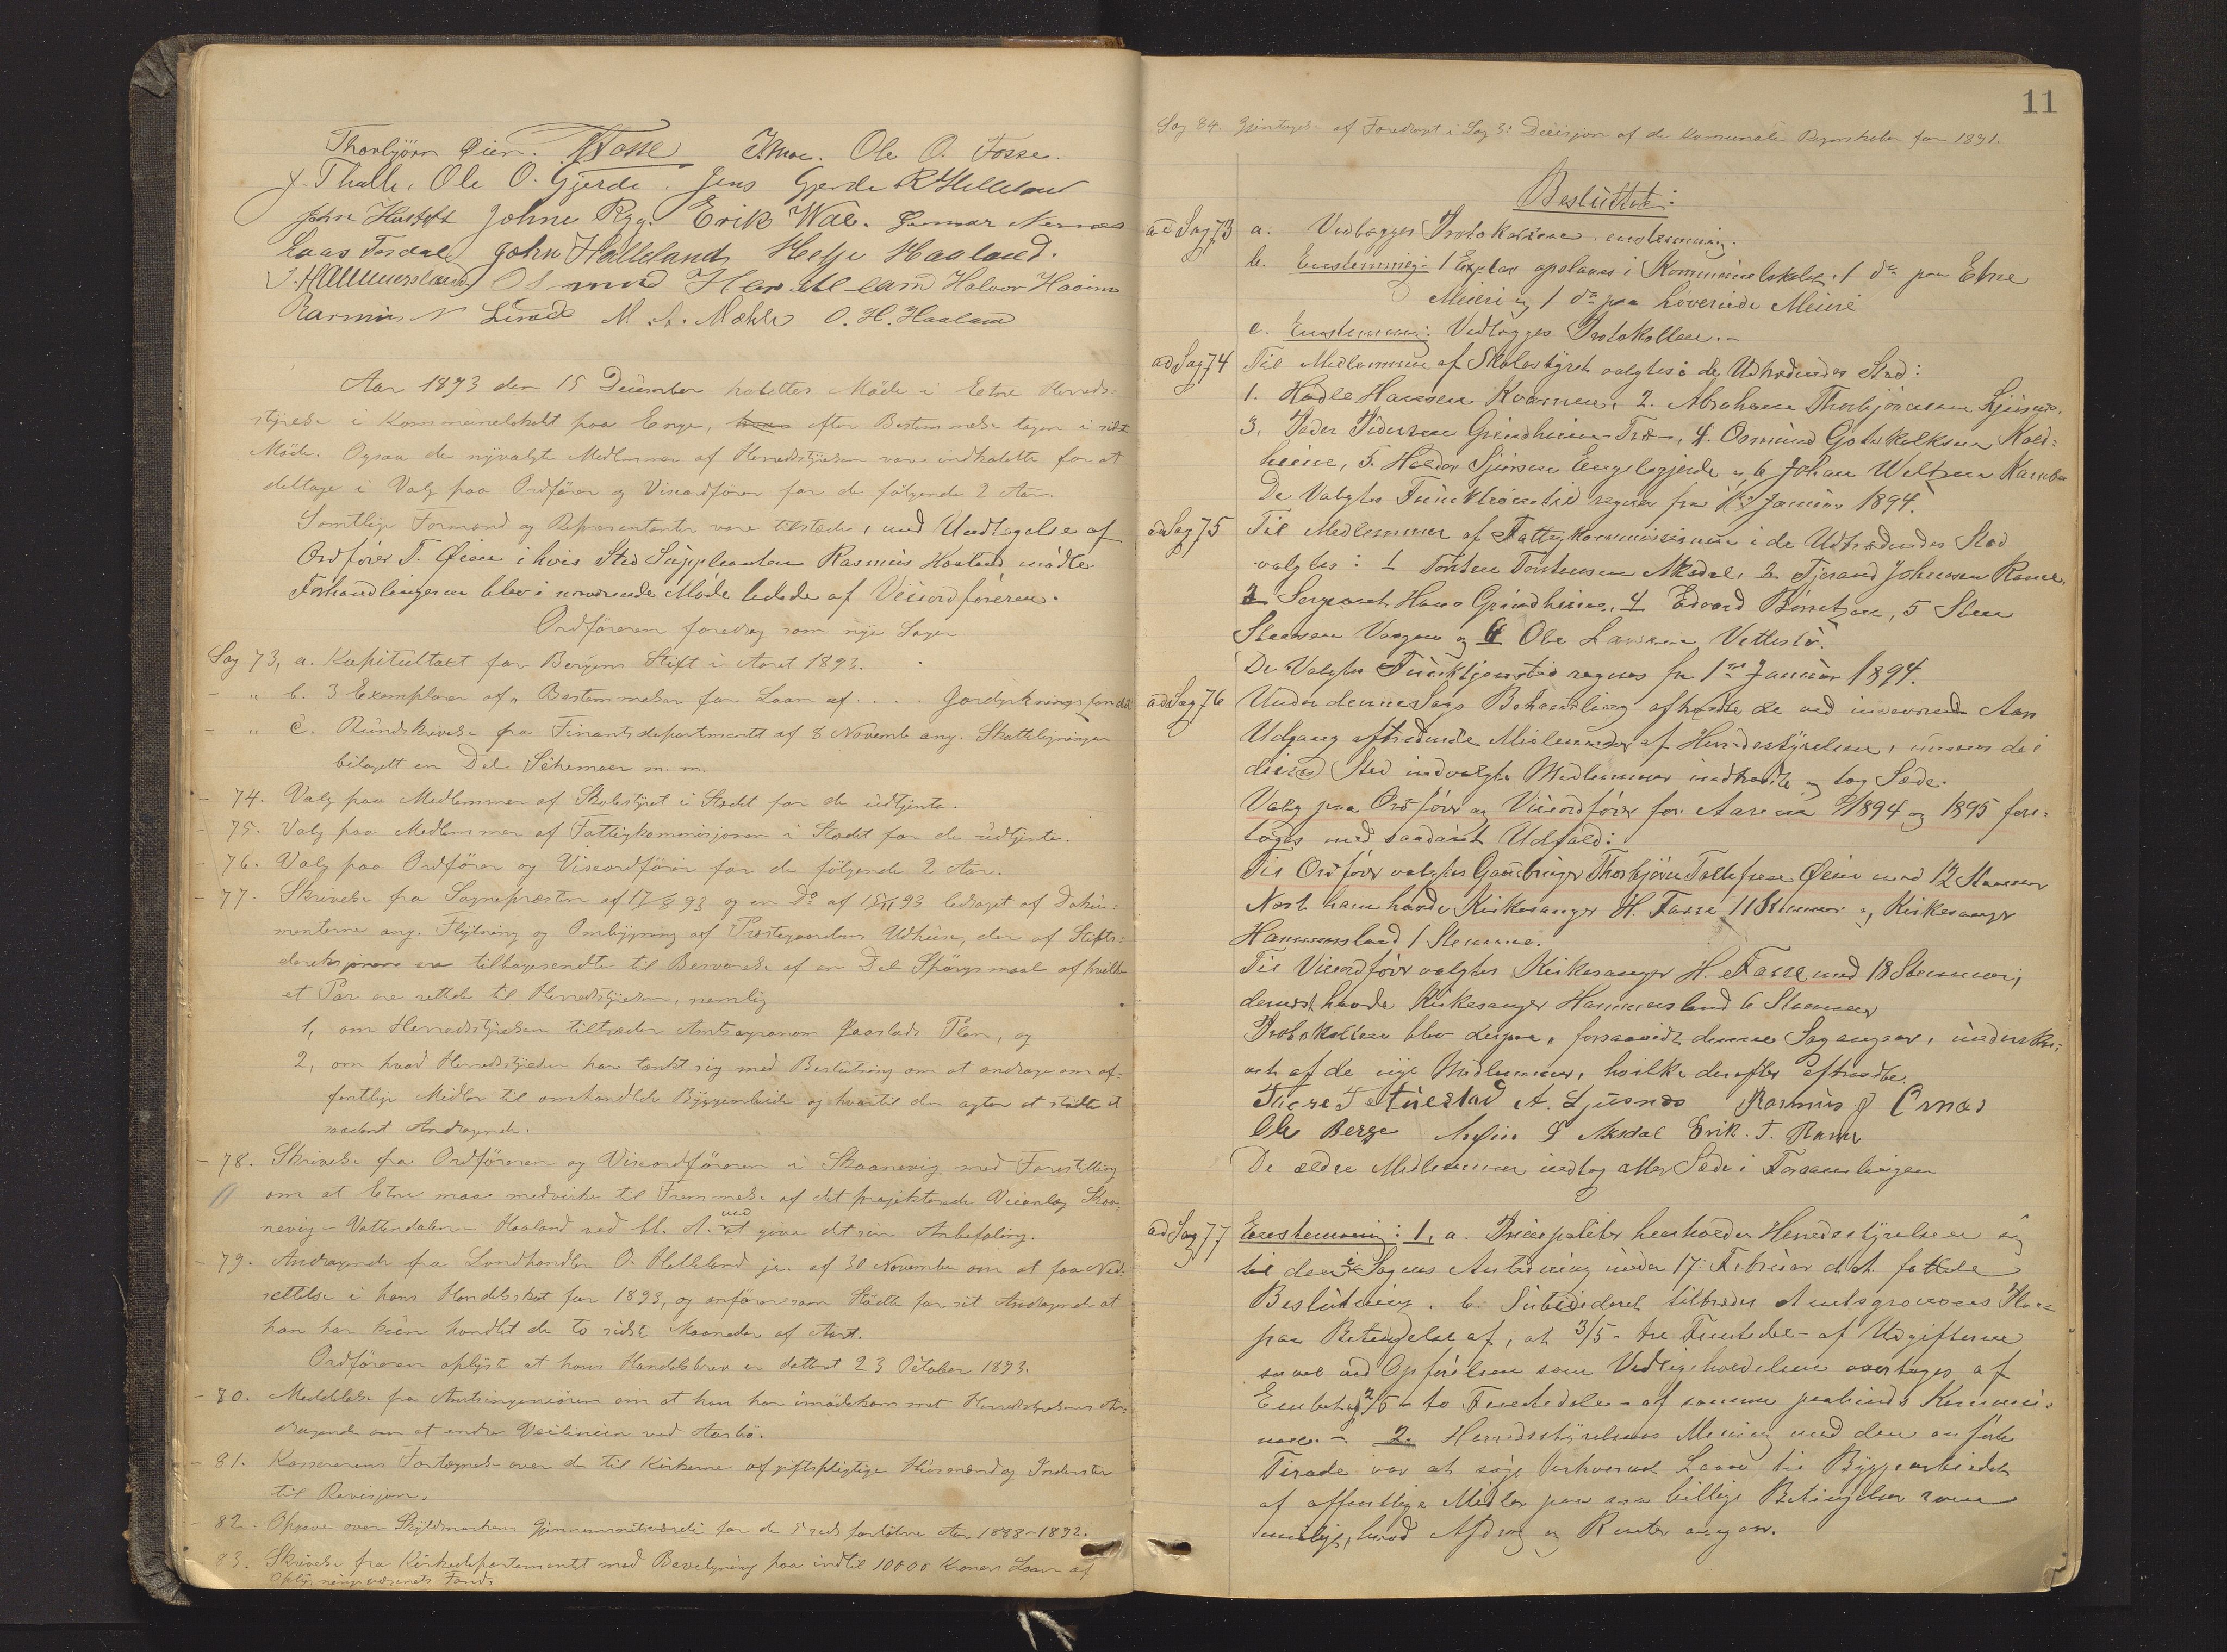 Thorbjörn Øien. HFosse J. Moe. Ole O. Fosse.
J. Thalle. Ole O. Gjerde. Jens Gjerde R Helleland
John Hustoft Johne Rygg. Erik Wae. Gunnar Nernæs
Laas Tesdal John Hálleland Helje Haaland.
J. Hammersland Osmund Haaland Halvor Haaim
Rasmus N Lunde M. A. Mæhle O. H. Haaland
Aar 1893 den 15 December holdttes Möde i Etne Herreds-
styrelse i Kommunelokalet paa Enge, efter Bestemmelse tagen i sidste
Möde. Ogsaa de nyvalgte Medlemmer af Herredsstyrelsen vare indkaldte for at
deltage i Valg paa Ordförer og Viceordförer for de fölgende 2 Aar.
Samtlige Formænd og Repræsentanter vare tilstede, med Undtagelse af
Ordförer T. Øien i hvis Sted Suppleanten Rasmus Haaland mødte.
Forhandlingerne blev i nærværende Möde ledede af Viceordföreren.
Ordföreren foredrog som nye Sager
Sag 73, a. Kapitultaxt for Bergens Stift i Aaret 1893.
- " b. 3 Exemplarer af "Bestemmelser for Laan af . . . . Jordyrkningsfondet
- " c. Rundskrivelse fra Finantsdepartementet af 8 November ang. Skatteligningen
bilagt en Del Schemaer m. m.
- 74. Valg paa Medlemmer af Skolestyret i Stedet for de udtjente.
- 75. Valg paa Medlemmer af Fattigkommisjonen i Stedet for de udtjente.
- 76. Valg paa Ordförer og Viceordförer for de fölgende 2 Aar.
- 77. Skrivelse fra Sognepræsten af 17/ 93 og en Do af 15/11 93 ledsaget af Doku-
menterne ang. Flytning og Ombygning af Præstegaardens Udhuse, der af Stifts-
direksjonen er tilbagesendte til Besvarelse af en Del Spörgsmaal af hvilke
et Par ere rettede til Herredsstyrelsen, nemlig
1, om Herredsstyrelsen tiltræder Amtsagronom Jaastads Plan, og
2, om hvad Herredsstyrelsen har tænkt sig med Beslutning om at andrage om of-
fentlige Midler til omhandlede Byggearbeide og hvortil den agter at stötte et
saadant Andragende.
- 78. Skrivelse fra Ordföreren og Viceordföreren i Skaanevig med Forestilling
om at Etne maa medvirke til Fremmelse af det projekterede Veianlæg Skaa-
nevig - Vattendalen - Haaland ved bl. A. ved at give det sin Anbefaling.
- 79. Andragende fra Landhandler O. Helleland jr. af 30 November om at faa Ned-
settelse i hans Handelsskat for 1893, og anförer som Stötte for sit Andragende at
han har kun handlet de to sidste Maaneder af Aaret.
Ordföreren oplyste at hans Handelsbrev er dateret 23 October 1893.
- 80. Meddelelse fra Amtsingeniören om at han har imödekommet Herredsstyrelsens An-
dragende om at endre Veilinien ved Aarbö.
- 81. Kassererens Fortegnelse over de til Kirkerne afgiftspligtige Husmænd og Inderster
til Revisjon.
- 82. Opgave over Skyldmarkens Gjennemsnitsværdi for de 5 sidst forløbne Aar 1888-1892.
- 83. Skrivelse fra Kirkedepartementet med Bevilgning paa indtil 10000 Kroners Laan af
Oplysningsvæsenets Fond.
11
Sag 84. Gjentagelse af Foredraget i Sag 3: Decisjon af de komunale Regnskaber for 1891.
Besluttet:
ad Sag 73 a. Vedlægges Protokollen. enstemmig.
b. Enstemmig: 1 Explar opslaaes i Kommunelokalet, 1 do paa Etne
Meieri og 1 do paa Lövereide Meieri
c. Enstemmig: Vedlægges Protokollen.-
ad Sag 74 Til Medlemmer af Skolestyret valgtes i de Udtrædendes Sted:
1. Hadle Hansen Kvarnen, 2. Abraham Thorbjörnsen
3, Peder Pedersen Grindheim Træ-, 4. Osmund Gotskalksen Kald-
heim, 5. Haldor Sjursen Engelsgjerde, 6 Johan Weltzen
De Valgtes Funktionstid regnes fra 1ste Januar 1894.
ad Sag 75 Til Medlemmer af Fattigkommisionen i de Udtrædendes Sted
valgtes: 1 Torsten Torstensen Aksdal. 2 Tjerand Johnsen Rame,
3 Sergeant Hans Grindheim, 4 Edvard Börretzen, 5 Sten
Stensen Vaagen og 6 Ole Larsen Vettestö.
De Valgtes Funktjonstid regnes fra 1ste Januar 1894.
ad Sag 76 Under denne Sags Behandling aftraadte de ved indeværende Aars
Udgang aftrædende Medlemmer af Herredsstyrelsen, imens de i
disses Sted indvalgte Medlemmer indtraadte og tog Sæde.
Valg paa Ordförer og Viceordförer for Aarene 1894 og 1895 fore-
toges med saadant Udfald:
Til Ordförer valgtes Gaardbruger Thorbjörn Tollefsen Øien med 12 Stemmer
Næst ham havde Kirkesanger H. Fosse 11 Stemmer og Kirkesanger
Hammersland 1 Stemme.
Til Viceordförer valgtes Kirkesanger H. Fosse med 18 Stemmer;
dernæst havde Kirkesanger Hammersland 6 Stemmer
Protokollen blev derpaa, forsaavidt denne Sag angaar, underskre-
vet af de nye Medlemmer, hvilke derefter aftraadte.
Tuestad A. Ljusnes Rasmus J Ørnæs
Ole Berge L Aksdal Erik. T. Rame
De ældre Medlemmer indtog atter Sæde i Forsamlingen
ad Sag 77 Enstemmig: 1, a. Principaliter henholder Herredsstyrelsen sig
til den i Sagens Anledning under 17 Februar d. A. fattede
Beslutning. b. Subsidiert tiltrædes Amtsagronomens Plan
paa Betingelse af, at 3/5 - tre Femtedel - af Udgifterne
saavel ved Opförelsen som Vedligeholdelsen overtages af
Embedet og 2/5 - to Femtedele - af samme paahviler Kommu-
nen. - 2. Herredsstyrelsens Mening med den anförte
Tirade var at söge erhvervet Laan til Byggearbeidet
af offentlige Midler paa saa billige Betingelser som
muligt, hvad Afdrag og Renter angaar.